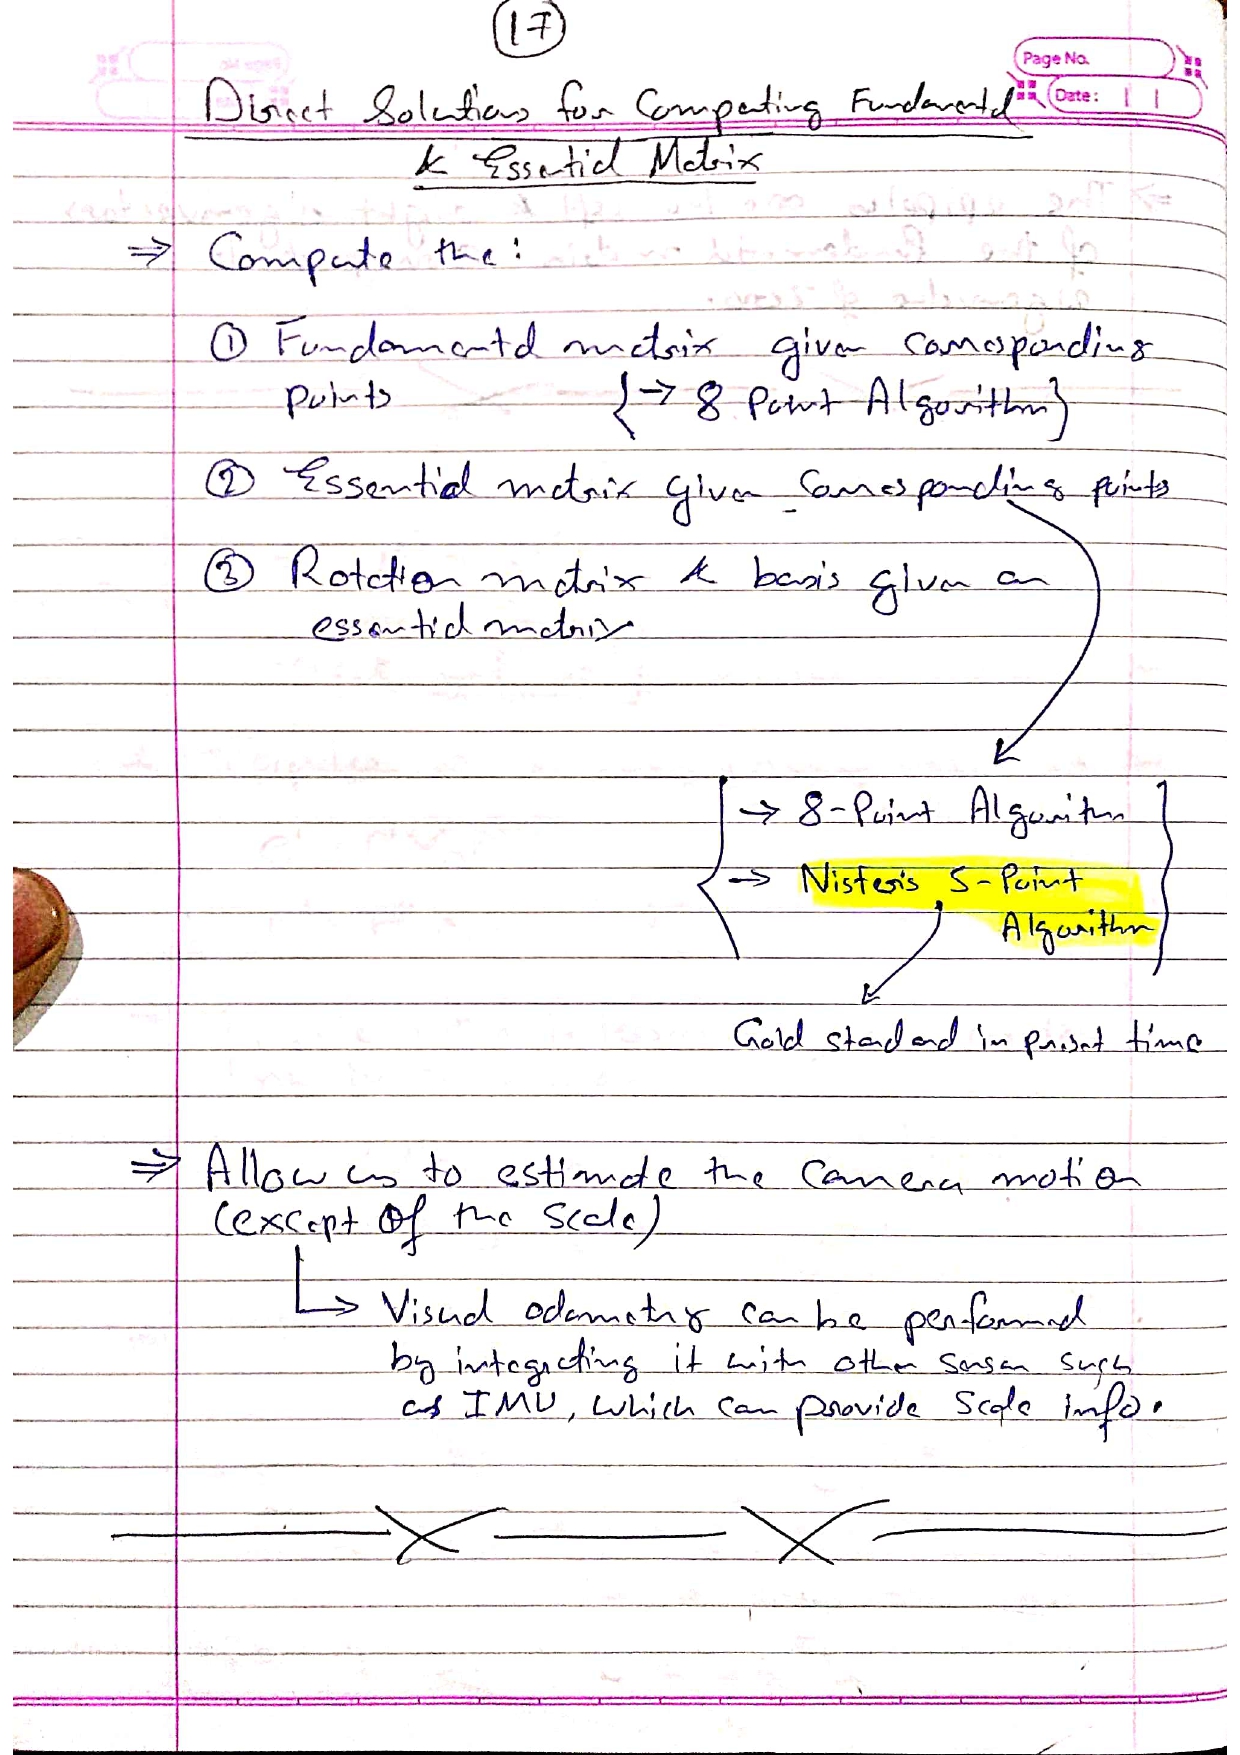 17
Page No.
Date:
Direct Solutions for Computing Fundamental
& Essential Matrix
⇒ Compute the:
① Fundamental matrix given corresponding
points {→ 8 Point Algorithm}
② Essential matrix given corresponding points
③ Rotation matrix & basis given an
essential matrix
→ 8-Point Algorithm
→ Nister's 5-Point
Algorithm
Gold standard in present time
⇒ Allow us to estimate the camera motion
(except of the scale)
→ Visual odometry can be performed
by integrating it with other sensor such
as IMU, which can provide scale info.